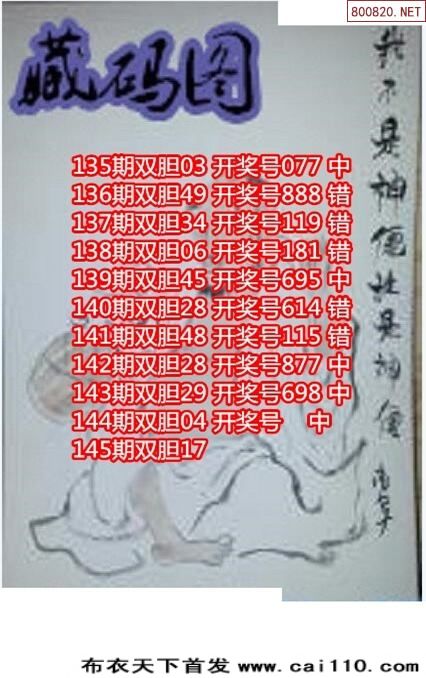 800820.NET
藏码图
135期双胆03 开奖号077 中
136期双胆49 开奖号888 错
137期双胆34 开奖号119 错
138期双胆06 开奖号181 错
139期双胆45 开奖号695 中
140期双胆28 开奖号614 错
141期双胆48 开奖号115 错
142期双胆28 开奖号877 中
143期双胆29 开奖号698 中
144期双胆04 开奖号 中
145期双胆17
我不是神僊 是神僊
布衣天下首发 www.cai110.com